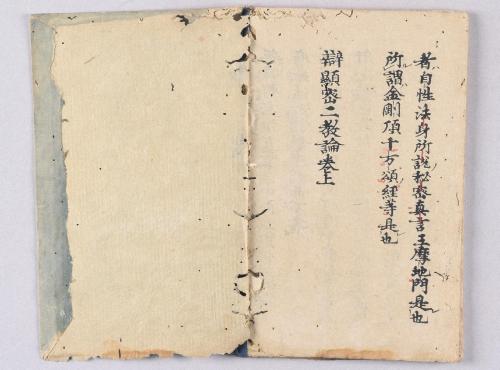 者自性法身所説秘密真言三摩地門是也
所謂金剛頂十万頌経等是也
辯顯密二教論巻上